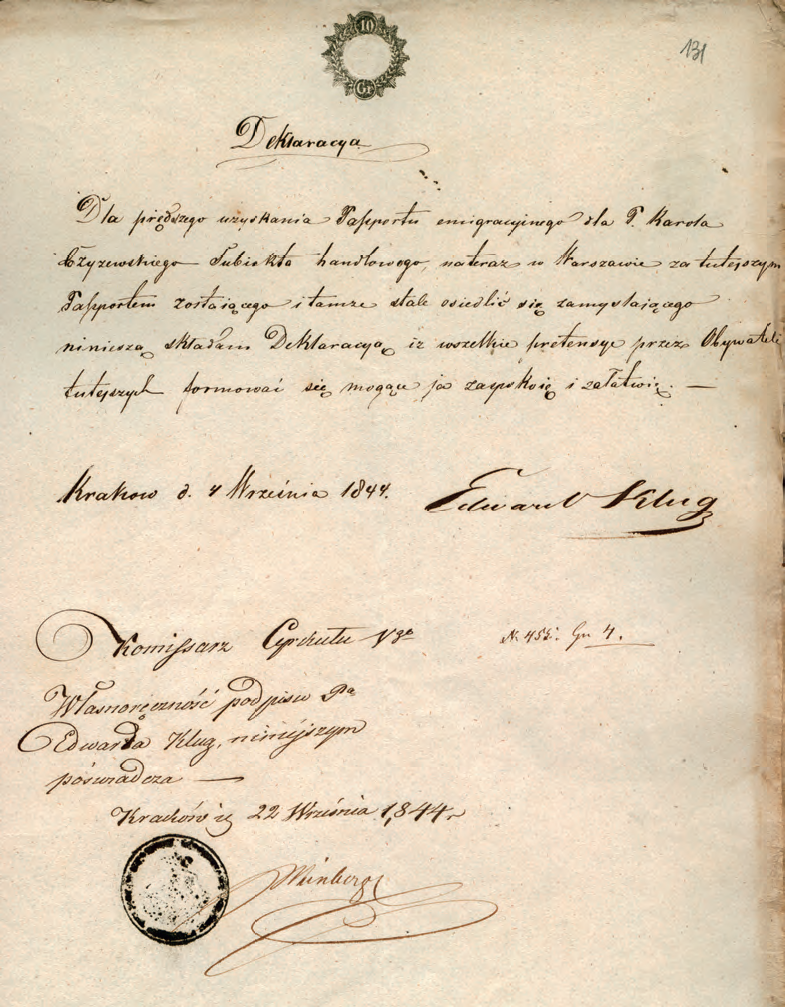 10
Gr
131
Deklaracya
Dla prędszego uzyskania Passportu emigracyjnego dla P. Karola
Czyzewskiego Subiekta handlowego, na teraz w Warszawie za tutejszym
Passportem zostaiącego i tamze stale osiedlić się zamyslaiącego
ninieszą składam Deklaracyą iz wszelkie pretensye przez Obywateli
tutejszych formować się mogące ja zaspokoię i załatwię. —
Krakow d. 4 Września 1844.
Edward Klug
Kommissarz Cyrkułu
N. 455. Gm 4.
Własnoręczność podpisu Pa
Edwarda Klug, niniéjszym
póswiadcza —
Kraków 22 Września 1844